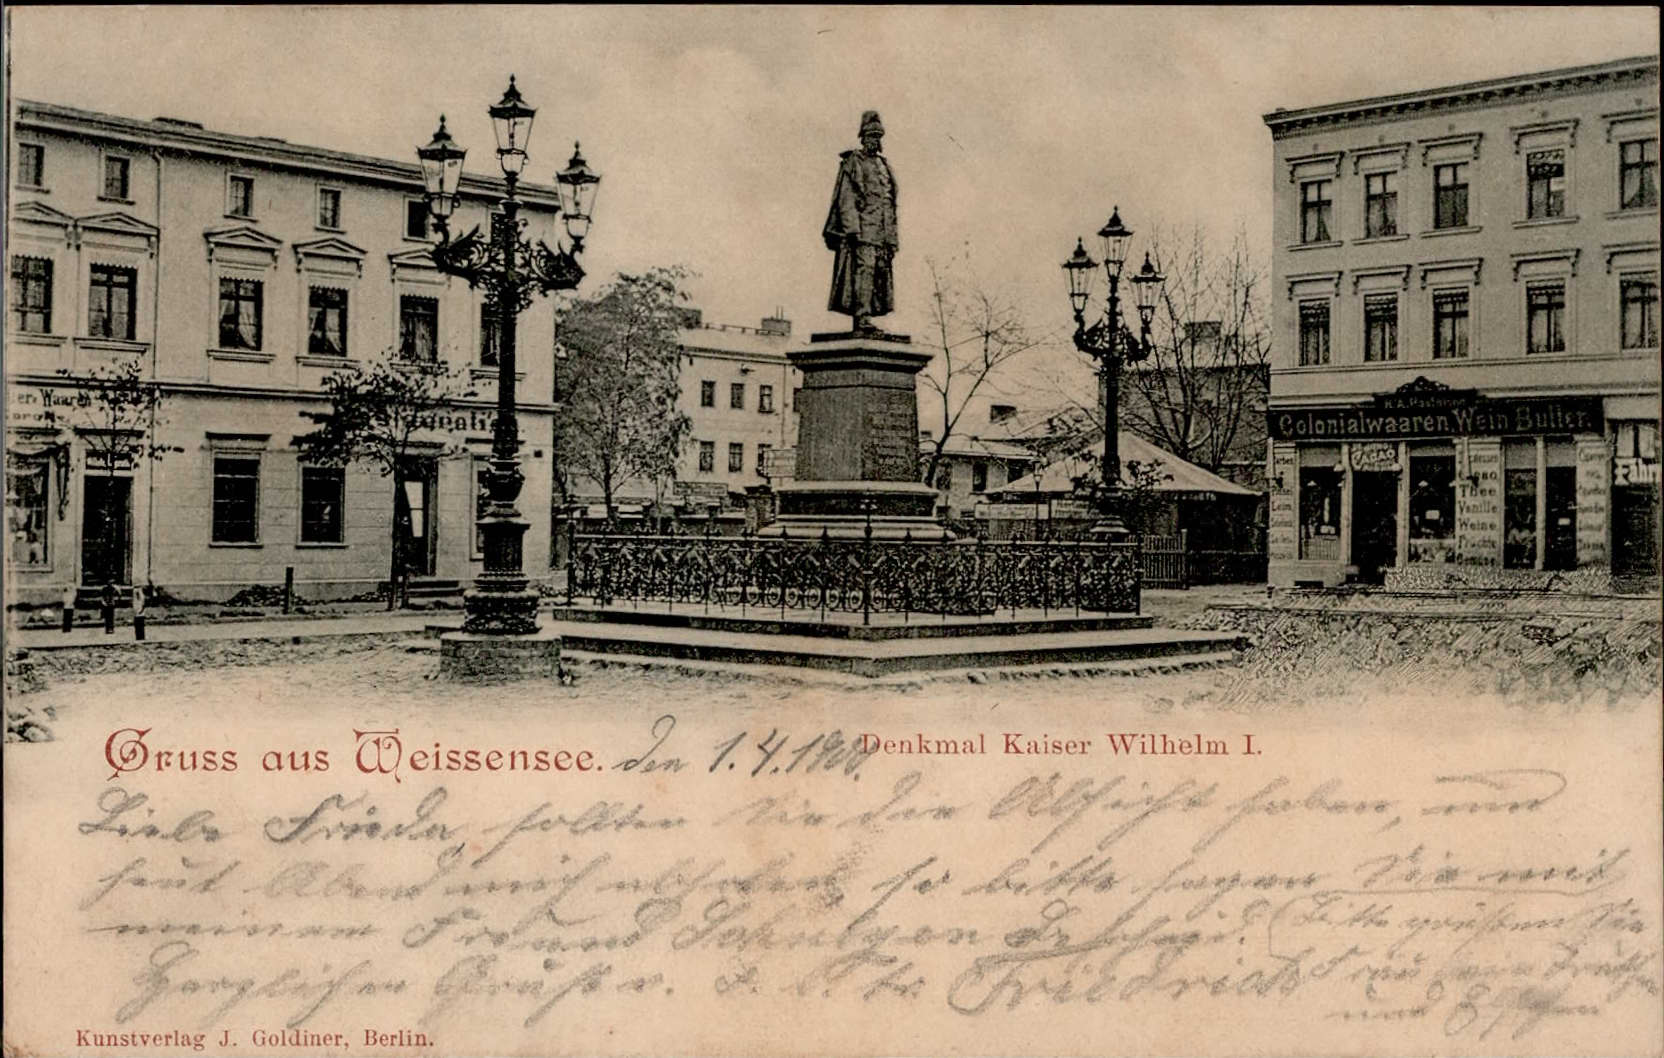 er, Waaren
H.A. Paschke
Colonialwaaren, Wein Butter.
CACAO
Cacao
Thee
Vanille
Weine
Früchte
Gruss aus Weissensee. den 1.4.1900. Denkmal Kaiser Wilhelm I.
Liebe Frieda, sollten Sie die Absicht haben, um
heut Abend mich abholen, so bitte sagen Sie mit
meinem Freund Bescheid. Bitte grüßen Sie
Herzlichen Gruß v. Friedrich Frau
und
Kunstverlag J. Goldiner, Berlin.